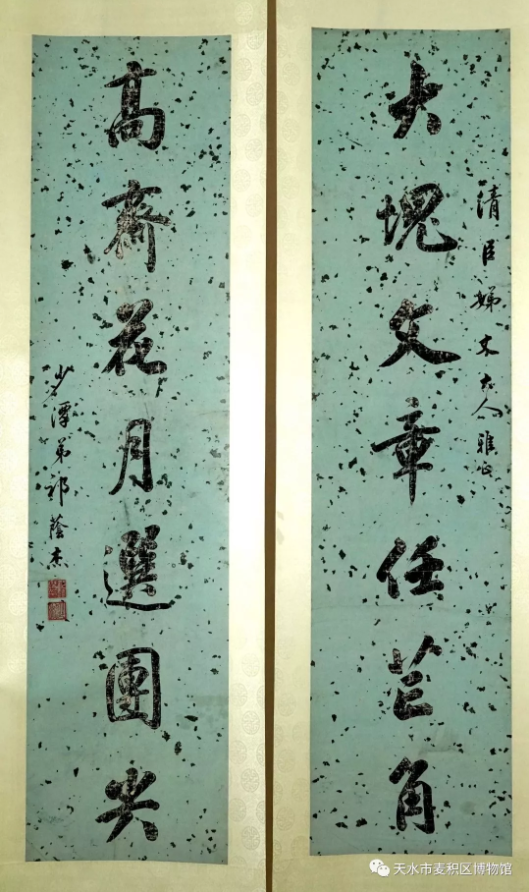 清臣姊丈大人雅正
大塊文章任芒角
高齋花月選團尖
少潭弟祁蔭杰
天水市麦积区博物馆